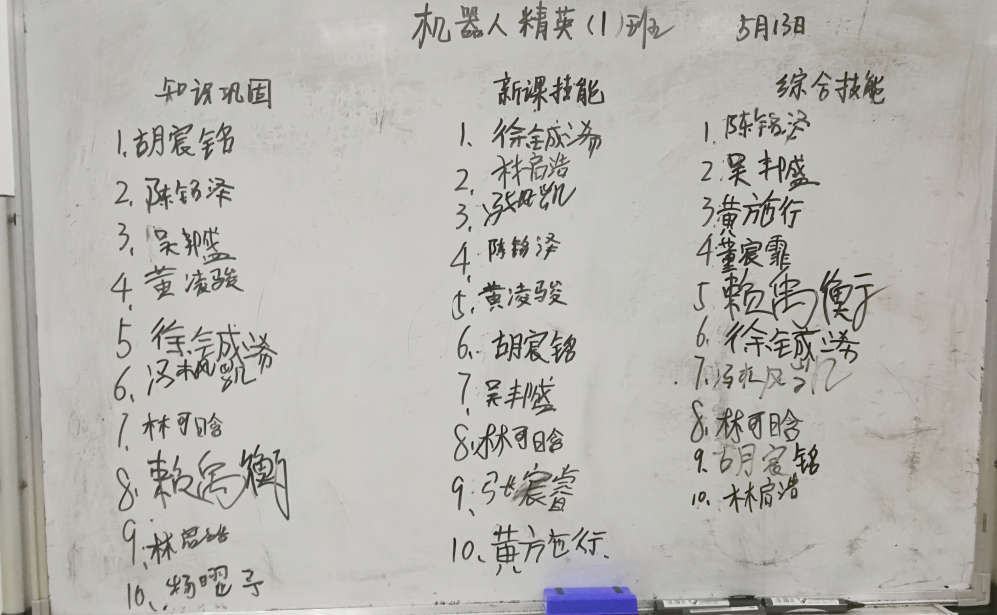 机器人精英(1)班 5月13日
知识巩固
1.胡宸铭
2.陈铭泽
3.吴邦盛
4.黄凌骏
5 徐铖浠
6.冯 凯
7.林可晗
8.赖禹衡
9.林启浩
10.杨曜予
新课技能
1.徐铖浠
2.林启浩
3.冯 凯
4.陈铭泽
5.黄凌骏
6.胡宸铭
7.吴邦盛
8.林可晗
9.张宸睿
10.黄方施行
综合技能
1.陈铭泽
2.吴邦盛
3.黄施行
4.董宸霏
5 赖禹衡
6.徐铖浠
7.冯 凯
8.林可晗
9.胡宸铭
10.林启浩